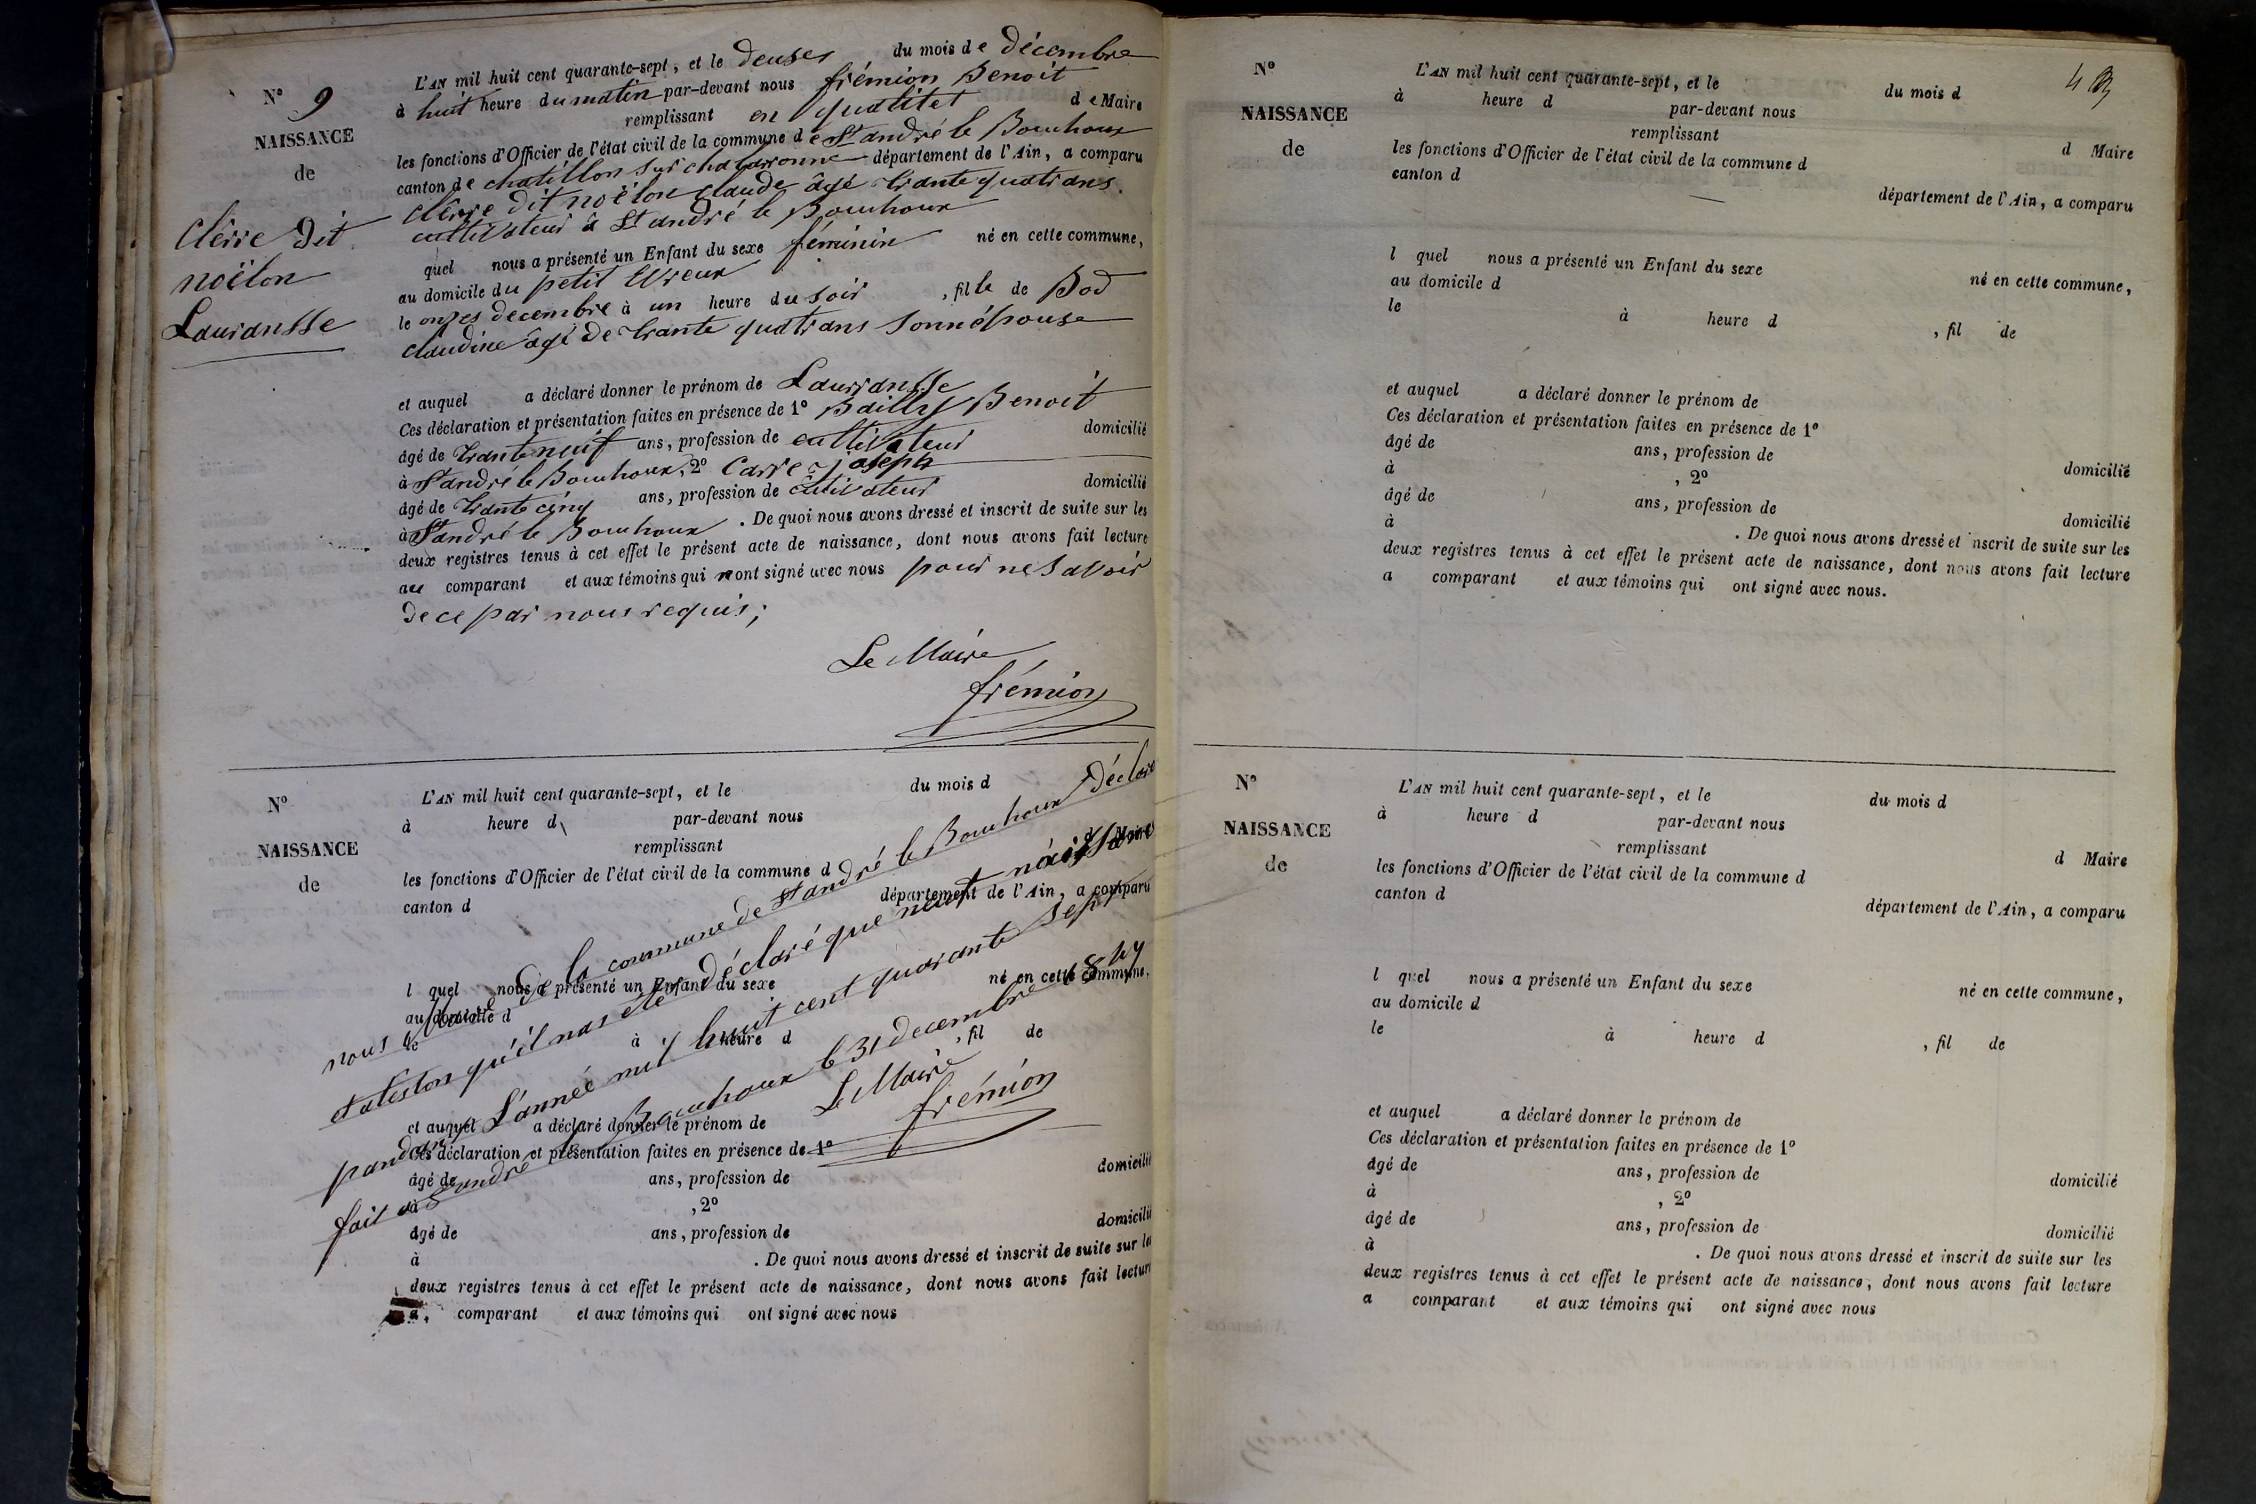 N° 9
NAISSANCE
de
Clèrre dit
noëlon
Lauransse
L'AN mil huit cent quarante-sept, et le deuses du mois de décembre
à huit heure du matin par-devant nous frémion Benoit
remplissant en qualitet de Maire
les fonctions d'Officier de l'état civil de la commune de St andré le Bouchoux
canton de chatillon sur chalaronne département de l'Ain, a comparu
clèrre dit noëlon claude âgé trante quatrans
cultivateur à St andré le Bouchoux
quel nous a présenté un Enfant du sexe féminin né en cette commune,
au domicile du petit Evreux
le onzes decembre à un heure du soir, fille de Bod
claudine âgé de trante quatrans sonnépouse
et auquel a déclaré donner le prénom de Lauransse
Ces déclaration et présentation faites en présence de 1° Bailly Benoit
âgé de trante neuf ans, profession de cultivateur domicilié
à St andré le Bouchoux, 2° Carre joseph
âgé de trante cinq ans, profession de cultivateur domicilié
à St andré le Bouchoux. De quoi nous avons dressé et inscrit de suite sur les
deux registres tenus à cet effet le présent acte de naissance, dont nous avons fait lecture
au comparant et aux témoins qui nont signé avec nous pour ne savoir
de ce par nous requis;
Le Maire
frémion
N°
NAISSANCE
de
L'AN mil huit cent quarante-sept, et le du mois d
à heure d par-devant nous
remplissant d Maire
les fonctions d'Officier de l'état civil de la commune d
canton d département de l'Ain, a comparu
l quel nous a présenté un Enfant du sexe né en cette commune,
au domicile d
le à heure d, fil de
et auquel a déclaré donner le prénom de
Ces déclaration et présentation faites en présence de 1°
âgé de ans, profession de domicilié
à, 2°
âgé de ans, profession de domicilié
à. De quoi nous avons dressé et inscrit de suite sur les
deux registres tenus à cet effet le présent acte de naissance, dont nous avons fait lecture
a comparant et aux témoins qui ont signé avec nous
nous Maire de la commune de St andré le Bouchoux déclare
et ateston qu'il nas été déclaré que neuf naissance
pandant L'année mil huit cent quarante sept
fait a St andré le Bouchoux le 31 decembre 1847
Le Maire
frémion
4
N°
NAISSANCE
de
L'AN mil huit cent quarante-sept, et le du mois d
à heure d par-devant nous
remplissant d Maire
les fonctions d'Officier de l'état civil de la commune d
canton d département de l'Ain, a comparu
l quel nous a présenté un Enfant du sexe né en cette commune,
au domicile d
le à heure d, fil de
et auquel a déclaré donner le prénom de
Ces déclaration et présentation faites en présence de 1°
âgé de ans, profession de domicilié
à, 2°
âgé de ans, profession de domicilié
à. De quoi nous avons dressé et inscrit de suite sur les
deux registres tenus à cet effet le présent acte de naissance, dont nous avons fait lecture
a comparant et aux témoins qui ont signé avec nous.
N°
NAISSANCE
de
L'AN mil huit cent quarante-sept, et le du mois d
à heure d par-devant nous
remplissant d Maire
les fonctions d'Officier de l'état civil de la commune d
canton d département de l'Ain, a comparu
l quel nous a présenté un Enfant du sexe né en cette commune,
au domicile d
le à heure d, fil de
et auquel a déclaré donner le prénom de
Ces déclaration et présentation faites en présence de 1°
âgé de ans, profession de domicilié
à, 2°
âgé de ans, profession de domicilié
à. De quoi nous avons dressé et inscrit de suite sur les
deux registres tenus à cet effet le présent acte de naissance, dont nous avons fait lecture
a comparant et aux témoins qui ont signé avec nous